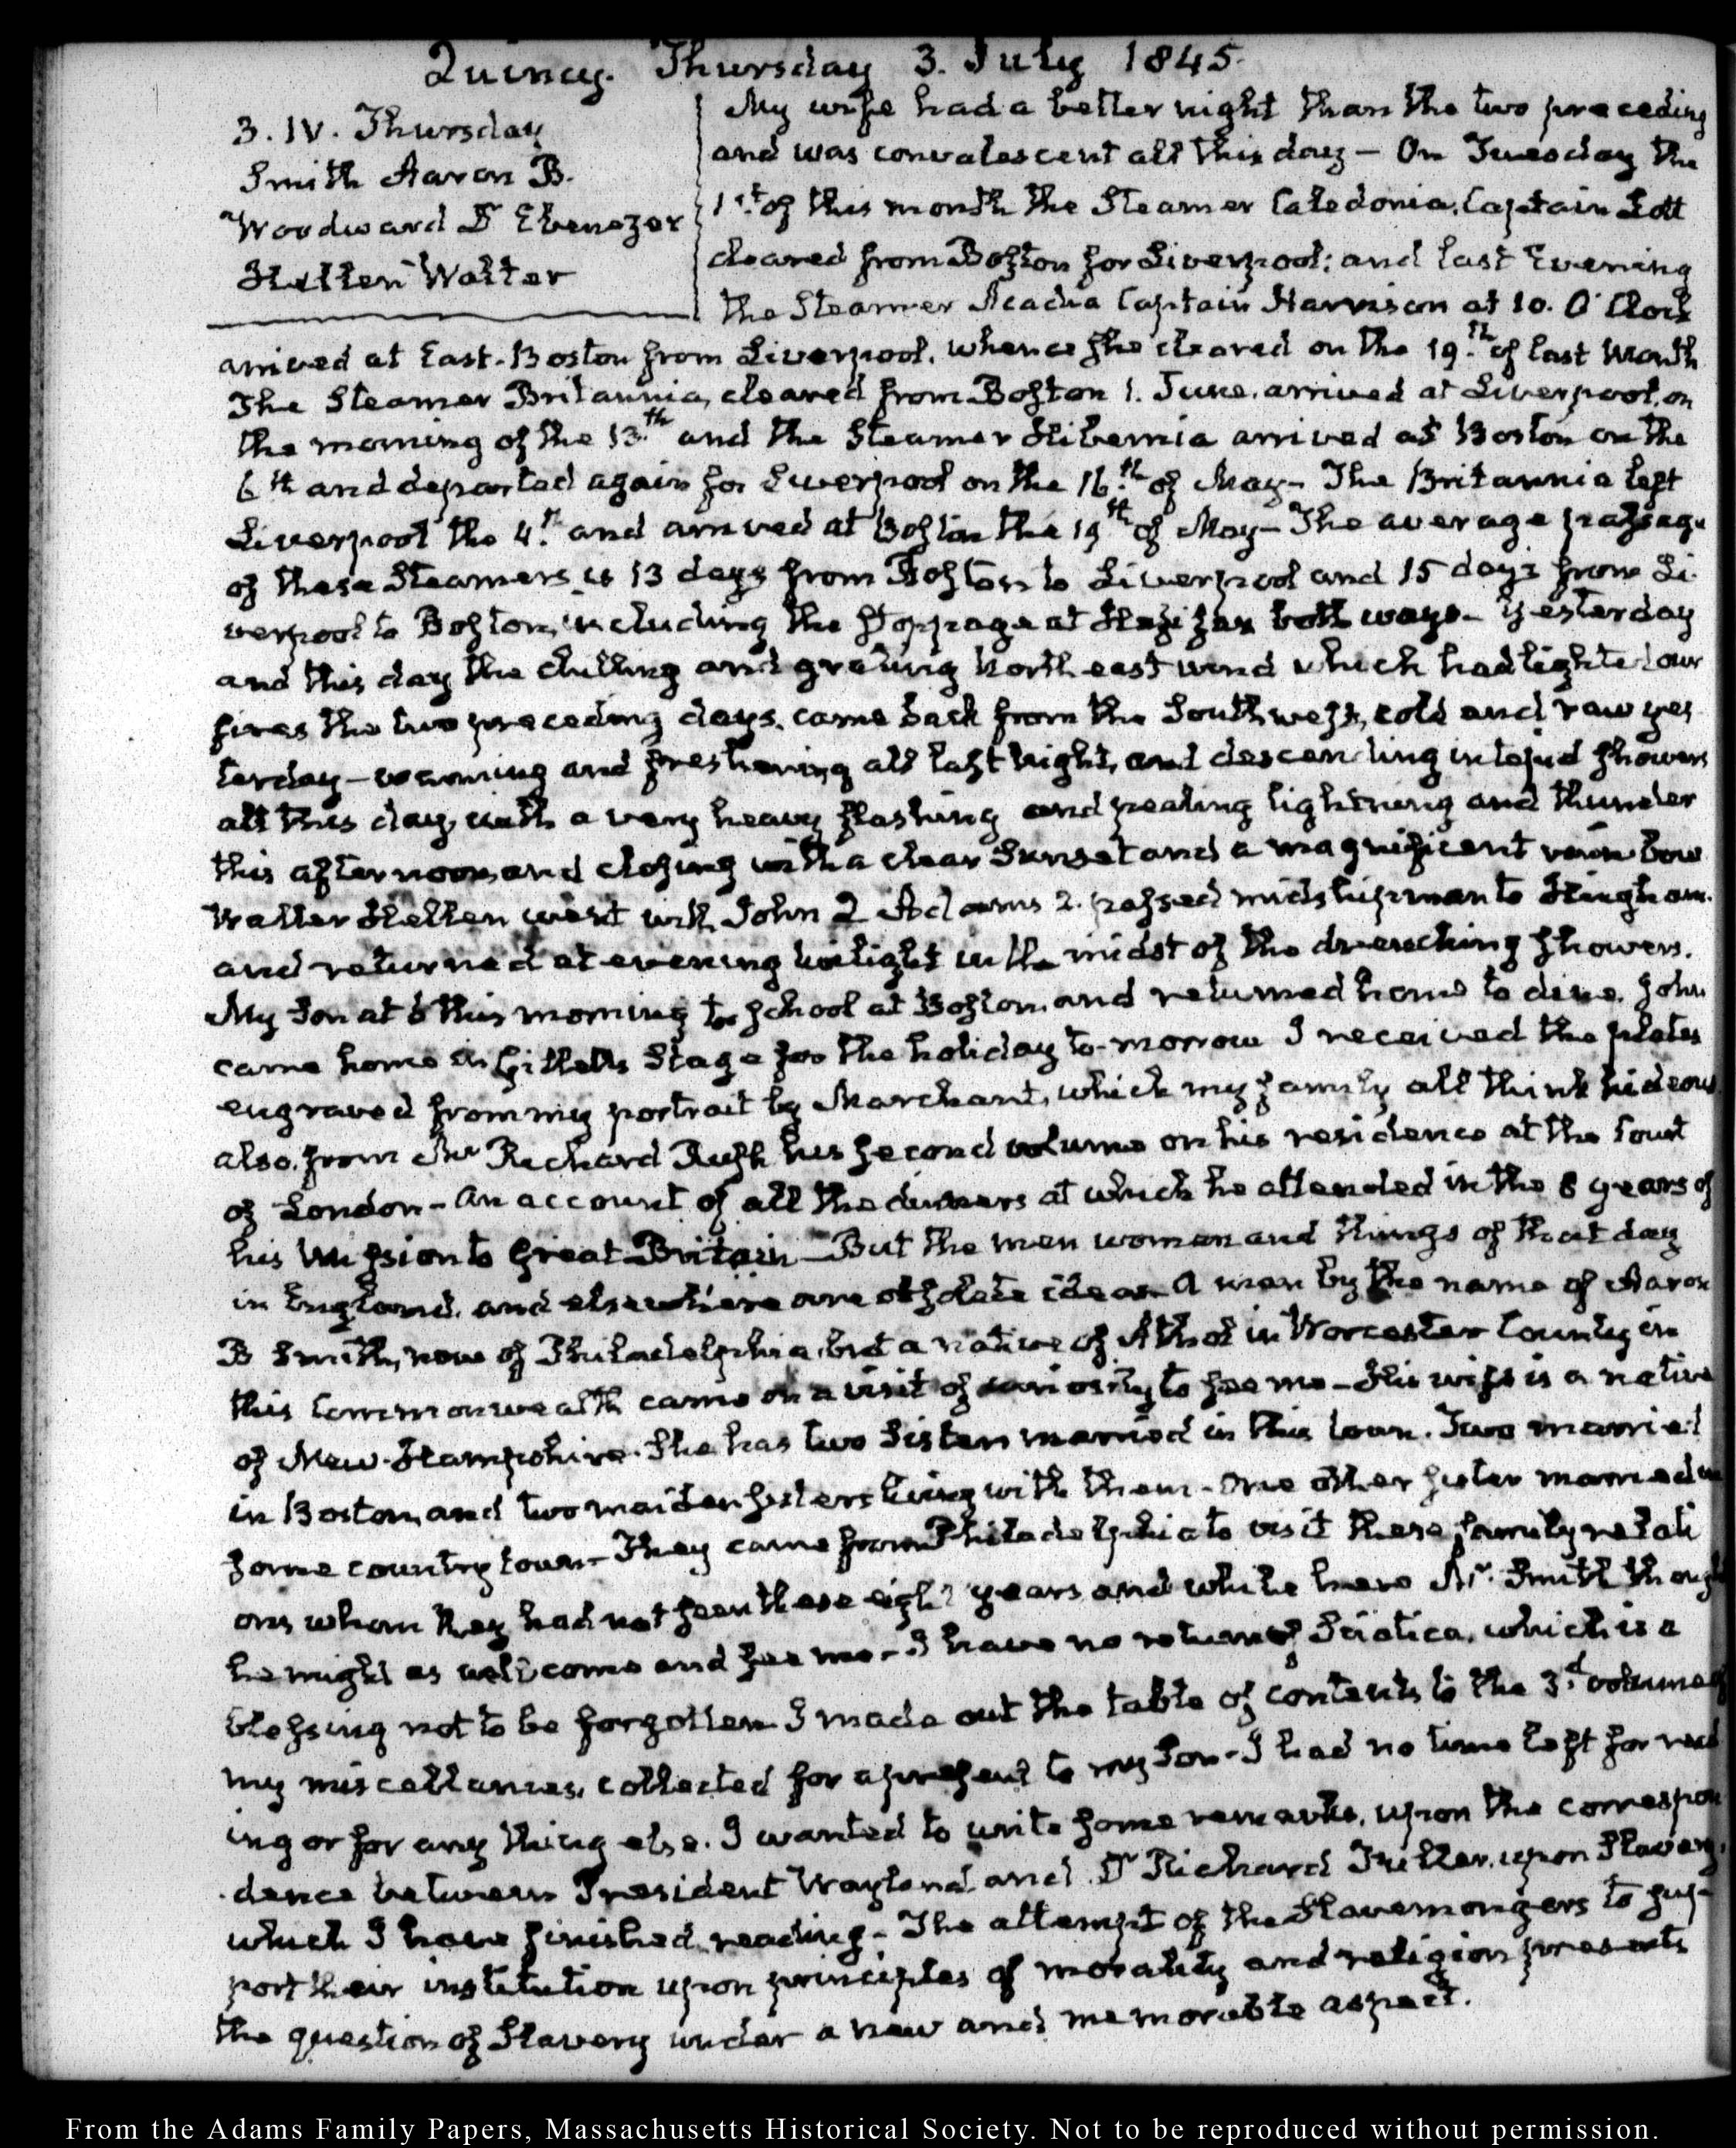 Quincy. Thursday 3. July 1845.
3. IV. Thursday
Smith Aaron B.
Woodward Dr Ebenezer
Hellen Walter
My wife had a better night than the two preceding
and was convalescent all this day — On Tuesday the
1st of this month the Steamer Caledonia, Captain Lott
cleared from Boston for Liverpool: and last Evening
the Steamer Acadia Captain Harrison at 10. O'Clock
arrived at East-Boston from Liverpool, whence she cleared on the 19.th of last Month
The Steamer Britannia, cleared from Boston 1. June, arrived at Liverpool, on
the morning of the 13.th and the Steamer Hibernia arrived at Boston on the
6th and departed again for Liverpool on the 16.th of May — The Britannia left
Liverpool the 4.th and arrived at Boston the 19th of May — The average passage
of these Steamers is 13 days from Boston to Liverpool and 15 days from Li-
verpool to Boston, including the stoppage at Halifax both ways — Yesterday
and this day the chilling and grating North east wind which had lighted our
fires the two preceding days, came back from the Southwest, cold and raw yes-
terday — warming and freshening all last Night, and descending in tepid showers
all this day, with a very heavy flashing and pealing lightning and thunder
this afternoon, and closing with a clear Sunset and a magnificent rain bow
Walter Hellen went with John Q Adams 2. passed midshipman to Hingham.
and returned at evening twilight in the midst of the drenching showers.
My Son at 6 this morning to school at Boston, and returned home to dine. John
came home in Gillett's Stage for the holiday to-morrow I received the plates
engraved from my portrait by Marchant, which my family all think hideous
also, from Mr Richard Rush his second volume on his residence at the Court
of London — An account of all the dinners at which he attended in the 8 years of
his Mission to Great-Britain — But the men women and things of that day
in England, and elsewhere are of date A man by the name of Aaron
B Smith, now of Philadelphia, but a native of Athol in Worcester County in
this Commonwealth came on a visit of curiosity to see me — His wife is a native
of New-Hampshire. She has two Sisters married in this town. Two married
in Boston, and two maiden sisters living with them — One other sister married in
some country town — They came from Philadelphia to visit these family relati
ons whom they had not seen these eight years and while here Mr. Smith thought
he might as well come and see me — I have no return of Sciatica, which is a
blessing not to be forgotten I made out the table of contents to the 3.d volume of
my miscellanies, collected for a present to my Son — I had no time left for read
ing or for any thing else. I wanted to write some remarks, upon the correspon
dence between President Wayland and Dr Richard Fuller, upon Slavery,
which I have finished reading — The attempt of the Slavemongers to sup-
port their institution upon principles of morality and religion presents
the question of Slavery under a new and memorable aspect.
From the Adams Family Papers, Massachusetts Historical Society. Not to be reproduced without permission.